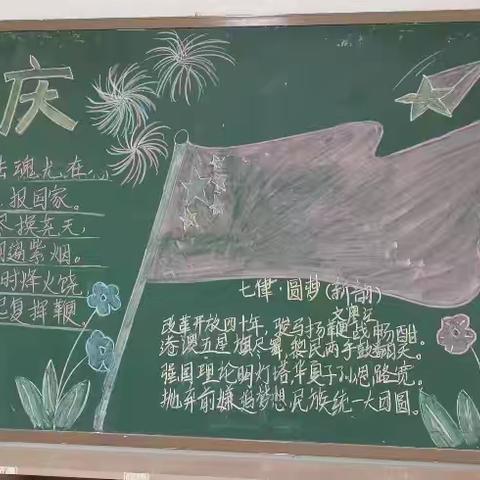 庆
魂尤在
报国家。
换尧天,
遍紫烟。
时烽火饶
复挥鞭。
七律·圆梦(新韵)
改革开放四十年,骏马扬鞭战畅酣。
港澳五星旗尽舞,黎民两手鼓天。
强国理论明灯塔,华夏子孙思路宽。
抛弃前嫌追梦想,民族统一大团圆。